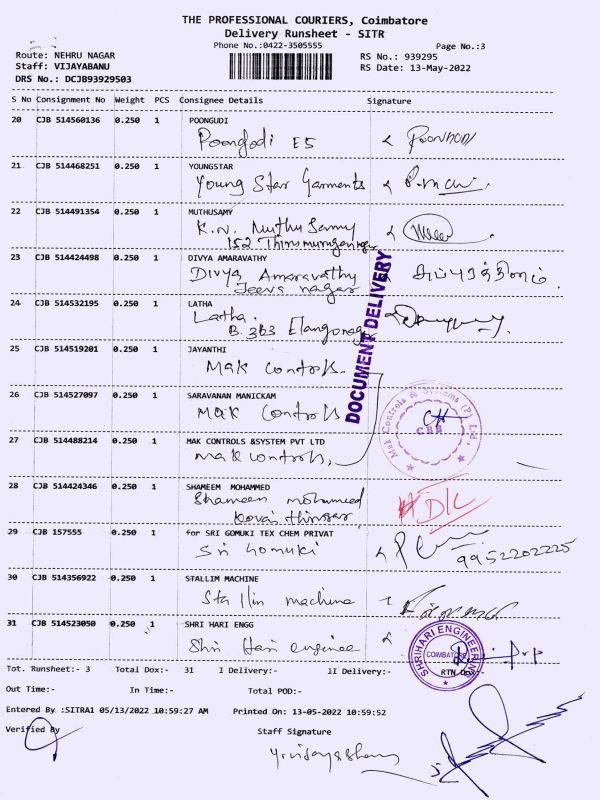 THE PROFESSIONAL COURIERS, Coimbatore
Delivery Runsheet - SITR
Phone No.:0422-3505555
Page No.:3
Route: NEHRU NAGAR
Staff: VIJAYABANU
DRS No.: DCJB93929503
RS No.: 939295
RS Date: 13-May-2022
S No Consignment No Weight PCS Consignee Details Signature
20 CJB 514560136 0.250 1 POONGUDI
Poongodi E5
21 CJB 514468251 0.250 1 YOUNGSTAR
Young Star Garments
22 CJB 514491354 0.250 1 MUTHUSAMY
K.N. Muthu Samy
152 Thirumurgan
23 CJB 514424498 0.250 1 DIVYA AMARAVATHY
Divya Amaravathy
Jeeva nagar
DOCUMENT DELIVERY
24 CJB 514532195 0.250 1 LATHA
Latha.
B. 363 Elangonagar
25 CJB 514519201 0.250 1 JAYANTHI
Mak Controls.
26 CJB 514527097 0.250 1 SARAVANAN MANICKAM
Mak Controls
Mak Controls & Systems (P) Ltd.,
CBE
27 CJB 514488214 0.250 1 MAK CONTROLS &SYSTEM PVT LTD
Mak Controls,
28 CJB 514424346 0.250 1 SHAMEEM MOHAMMED
Shameen mohameed
D/L
29 CJB 157555 0.250 1 for SRI GOMUKI TEX CHEM PRIVAT
Sri Gomuki
9952202225
30 CJB 514356922 0.250 1 STALLIM MACHINE
Stallin machine
31 CJB 514523050 0.250 1 SHRI HARI ENGG
Shri Hari enginee
SHRIHARI ENGINEERING
COIMBATORE
Tot. Runsheet:- 3 Total Dox:- 31 I Delivery:- II Delivery:- RTN Dox:-
Out Time:- In Time:- Total POD:-
Entered By :SITRA1 05/13/2022 10:59:27 AM Printed On: 13-05-2022 10:59:52
Verified By Staff Signature